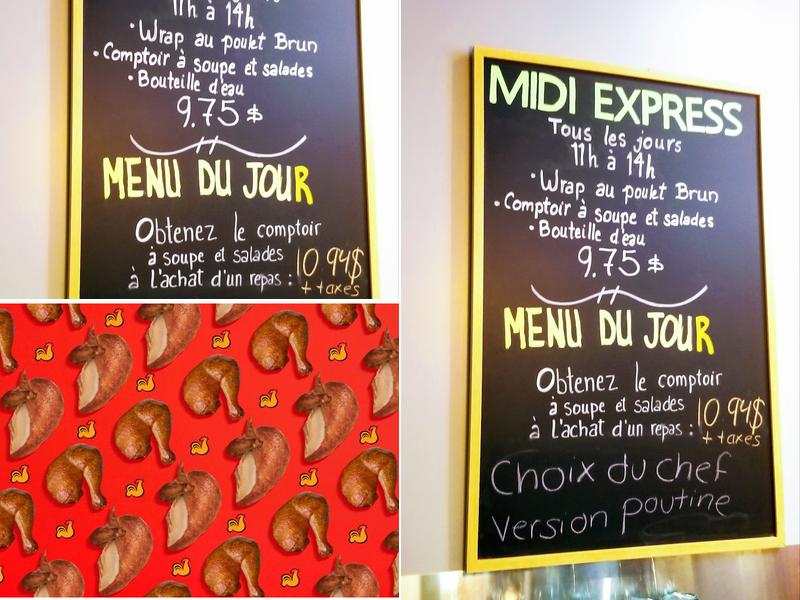 11h à 14h
• Wrap au poulet Brun
• Comptoir à soupe et salades
• Bouteille d'eau
9.75 $
MENU DU JOUR
Obtenez le comptoir
à soupe et salades
à l'achat d'un repas : 10 94$
+ taxes
MIDI EXPRESS
Tous les jours
11h à 14h
• Wrap au poulet Brun
• Comptoir à soupe et salades
• Bouteille d'eau
9.75 $
MENU DU JOUR
Obtenez le comptoir
à soupe et salades
à l'achat d'un repas : 10 94$
+ taxes
Choix du chef
version poutine